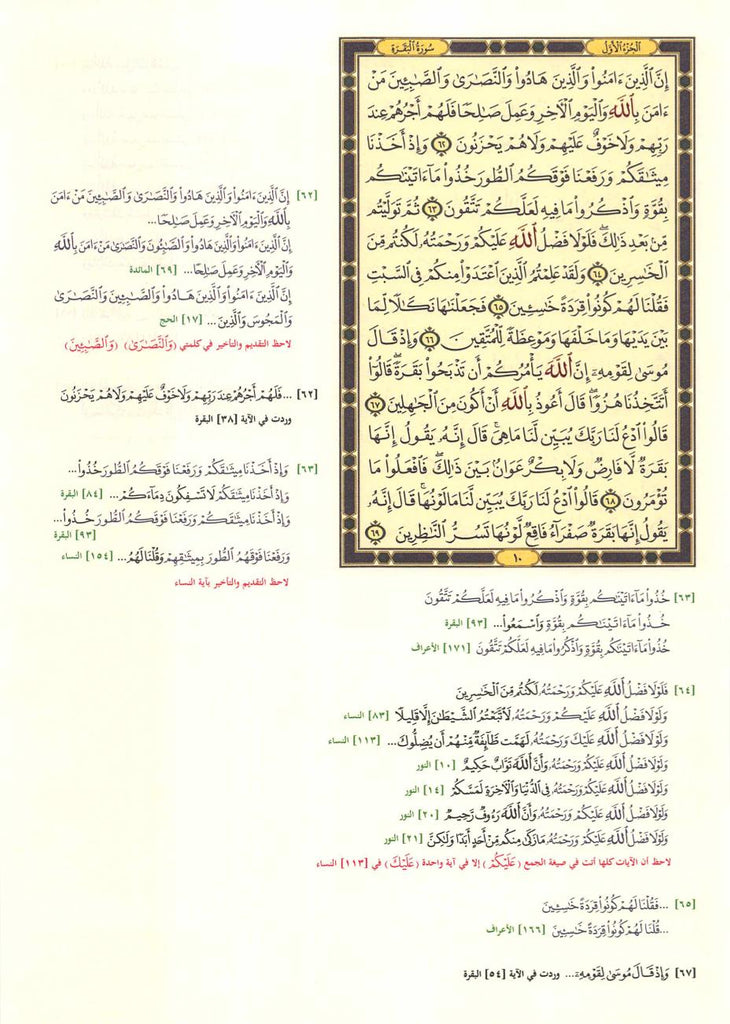 الجزء الأول
سورة البقرة
إِنَّ ٱلَّذِينَ ءَامَنُوا۟ وَٱلَّذِينَ هَادُوا۟ وَٱلنَّصَـٰرَىٰ وَٱلصَّـٰبِـِٔينَ مَنْ
ءَامَنَ بِٱللَّهِ وَٱلْيَوْمِ ٱلْـَٔاخِرِ وَعَمِلَ صَـٰلِحًا فَلَهُمْ أَجْرُهُمْ عِندَ
رَبِّهِمْ وَلَا خَوْفٌ عَلَيْهِمْ وَلَا هُمْ يَحْزَنُونَ ٦٢ وَإِذْ أَخَذْنَا
مِيثَـٰقَكُمْ وَرَفَعْنَا فَوْقَكُمُ ٱلطُّورَ خُذُوا۟ مَآ ءَاتَيْنَـٰكُم
بِقُوَّةٍ وَٱذْكُرُوا۟ مَا فِيهِ لَعَلَّكُمْ تَتَّقُونَ ٦٣ ثُمَّ تَوَلَّيْتُم
مِّنۢ بَعْدِ ذَٰلِكَ ۖ فَلَوْلَا فَضْلُ ٱللَّهِ عَلَيْكُمْ وَرَحْمَتُهُۥ لَكُنتُم مِّنَ
ٱلْخَـٰسِرِينَ ٦٤ وَلَقَدْ عَلِمْتُمُ ٱلَّذِينَ ٱعْتَدَوْا۟ مِنكُمْ فِى ٱلسَّبْتِ
فَقُلْنَا لَهُمْ كُونُوا۟ قِرَدَةً خَـٰسِـِٔينَ ٦٥ فَجَعَلْنَـٰهَا نَكَـٰلًا لِّمَا
بَيْنَ يَدَيْهَا وَمَا خَلْفَهَا وَمَوْعِظَةً لِّلْمُتَّقِينَ ٦٦ وَإِذْ قَالَ
مُوسَىٰ لِقَوْمِهِۦٓ إِنَّ ٱللَّهَ يَأْمُرُكُمْ أَن تَذْبَحُوا۟ بَقَرَةً ۖ قَالُوٓا۟
أَتَتَّخِذُنَا هُزُوًا ۖ قَالَ أَعُوذُ بِٱللَّهِ أَنْ أَكُونَ مِنَ ٱلْجَـٰهِلِينَ ٦٧
قَالُوا۟ ٱدْعُ لَنَا رَبَّكَ يُبَيِّن لَّنَا مَا هِىَ ۚ قَالَ إِنَّهُۥ يَقُولُ إِنَّهَا
بَقَرَةٌ لَّا فَارِضٌ وَلَا بِكْرٌ عَوَانٌۢ بَيْنَ ذَٰلِكَ ۖ فَٱفْعَلُوا۟ مَا
تُؤْمَرُونَ ٦٨ قَالُوا۟ ٱدْعُ لَنَا رَبَّكَ يُبَيِّن لَّنَا مَا لَوْنُهَا ۚ قَالَ إِنَّهُۥ
يَقُولُ إِنَّهَا بَقَرَةٌ صَفْرَآءُ فَاقِعٌ لَّوْنُهَا تَسُرُّ ٱلنَّـٰظِرِينَ ٦٩
١٠
[٦٢] إِنَّ ٱلَّذِينَ ءَامَنُوا۟ وَٱلَّذِينَ هَادُوا۟ وَٱلنَّصَـٰرَىٰ وَٱلصَّـٰبِـِٔينَ مَنْ ءَامَنَ
بِٱللَّهِ وَٱلْيَوْمِ ٱلْـَٔاخِرِ وَعَمِلَ صَـٰلِحًا...
إِنَّ ٱلَّذِينَ ءَامَنُوا۟ وَٱلَّذِينَ هَادُوا۟ وَٱلصَّـٰبِـُٔونَ وَٱلنَّصَـٰرَىٰ مَنْ ءَامَنَ بِٱللَّهِ
وَٱلْيَوْمِ ٱلْـَٔاخِرِ وَعَمِلَ صَـٰلِحًا... [٦٩] المائدة
إِنَّ ٱلَّذِينَ ءَامَنُوا۟ وَٱلَّذِينَ هَادُوا۟ وَٱلصَّـٰبِـِٔينَ وَٱلنَّصَـٰرَىٰ
وَٱلْمَجُوسَ وَٱلَّذِينَ... [١٧] الحج
لاحظ التقديم والتأخير في كلمتي (وَٱلنَّصَـٰرَىٰ) (وَٱلصَّـٰبِـِٔينَ)
[٦٢] ...فَلَهُمْ أَجْرُهُمْ عِندَ رَبِّهِمْ وَلَا خَوْفٌ عَلَيْهِمْ وَلَا هُمْ يَحْزَنُونَ
وردت في الآية [٣٨] البقرة
[٦٣] وَإِذْ أَخَذْنَا مِيثَـٰقَكُمْ وَرَفَعْنَا فَوْقَكُمُ ٱلطُّورَ خُذُوا۟...
وَإِذْ أَخَذْنَا مِيثَـٰقَكُمْ لَا تَسْفِكُونَ دِمَآءَكُمْ... [٨٤] البقرة
وَإِذْ أَخَذْنَا مِيثَـٰقَكُمْ وَرَفَعْنَا فَوْقَكُمُ ٱلطُّورَ خُذُوا۟...
[٩٣] البقرة
وَرَفَعْنَا فَوْقَهُمُ ٱلطُّورَ بِمِيثَـٰقِهِمْ وَقُلْنَا لَهُمُ... [١٥٤] النساء
لاحظ التقديم والتأخير بآية النساء
[٦٣] خُذُوا۟ مَآ ءَاتَيْنَـٰكُم بِقُوَّةٍ وَٱذْكُرُوا۟ مَا فِيهِ لَعَلَّكُمْ تَتَّقُونَ
خُذُوا۟ مَآ ءَاتَيْنَـٰكُم بِقُوَّةٍ وَٱسْمَعُوا۟... [٩٣] البقرة
خُذُوا۟ مَآ ءَاتَيْنَـٰكُم بِقُوَّةٍ وَٱذْكُرُوا۟ مَا فِيهِ لَعَلَّكُمْ تَتَّقُونَ [١٧١] الأعراف
[٦٤] فَلَوْلَا فَضْلُ ٱللَّهِ عَلَيْكُمْ وَرَحْمَتُهُۥ لَكُنتُم مِّنَ ٱلْخَـٰسِرِينَ
وَلَوْلَا فَضْلُ ٱللَّهِ عَلَيْكُمْ وَرَحْمَتُهُۥ لَٱتَّبَعْتُمُ ٱلشَّيْطَـٰنَ إِلَّا قَلِيلًا [٨٣] النساء
وَلَوْلَا فَضْلُ ٱللَّهِ عَلَيْكَ وَرَحْمَتُهُۥ لَهَمَّت طَّآئِفَةٌ مِّنْهُمْ أَن يُضِلُّوكَ... [١١٣] النساء
وَلَوْلَا فَضْلُ ٱللَّهِ عَلَيْكُمْ وَرَحْمَتُهُۥ وَأَنَّ ٱللَّهَ تَوَّابٌ حَكِيمٌ [١٠] النور
وَلَوْلَا فَضْلُ ٱللَّهِ عَلَيْكُمْ وَرَحْمَتُهُۥ فِى ٱلدُّنْيَا وَٱلْـَٔاخِرَةِ لَمَسَّكُمْ [١٤] النور
وَلَوْلَا فَضْلُ ٱللَّهِ عَلَيْكُمْ وَرَحْمَتُهُۥ وَأَنَّ ٱللَّهَ رَءُوفٌ رَّحِيمٌ [٢٠] النور
وَلَوْلَا فَضْلُ ٱللَّهِ عَلَيْكُمْ وَرَحْمَتُهُۥ مَا زَكَىٰ مِنكُم مِّنْ أَحَدٍ أَبَدًا وَلَـٰكِنَّ [٢١] النور
لاحظ أن الآيات كلها أتت في صيغة الجمع (عَلَيْكُمْ) إلا في آية واحدة (عَلَيْكَ) في [١١٣] النساء
[٦٥] ...فَقُلْنَا لَهُمْ كُونُوا۟ قِرَدَةً خَـٰسِـِٔينَ
...قُلْنَا لَهُمْ كُونُوا۟ قِرَدَةً خَـٰسِـِٔينَ [١٦٦] الأعراف
[٦٧] وَإِذْ قَالَ مُوسَىٰ لِقَوْمِهِۦ... وردت في الآية [٥٤] البقرة